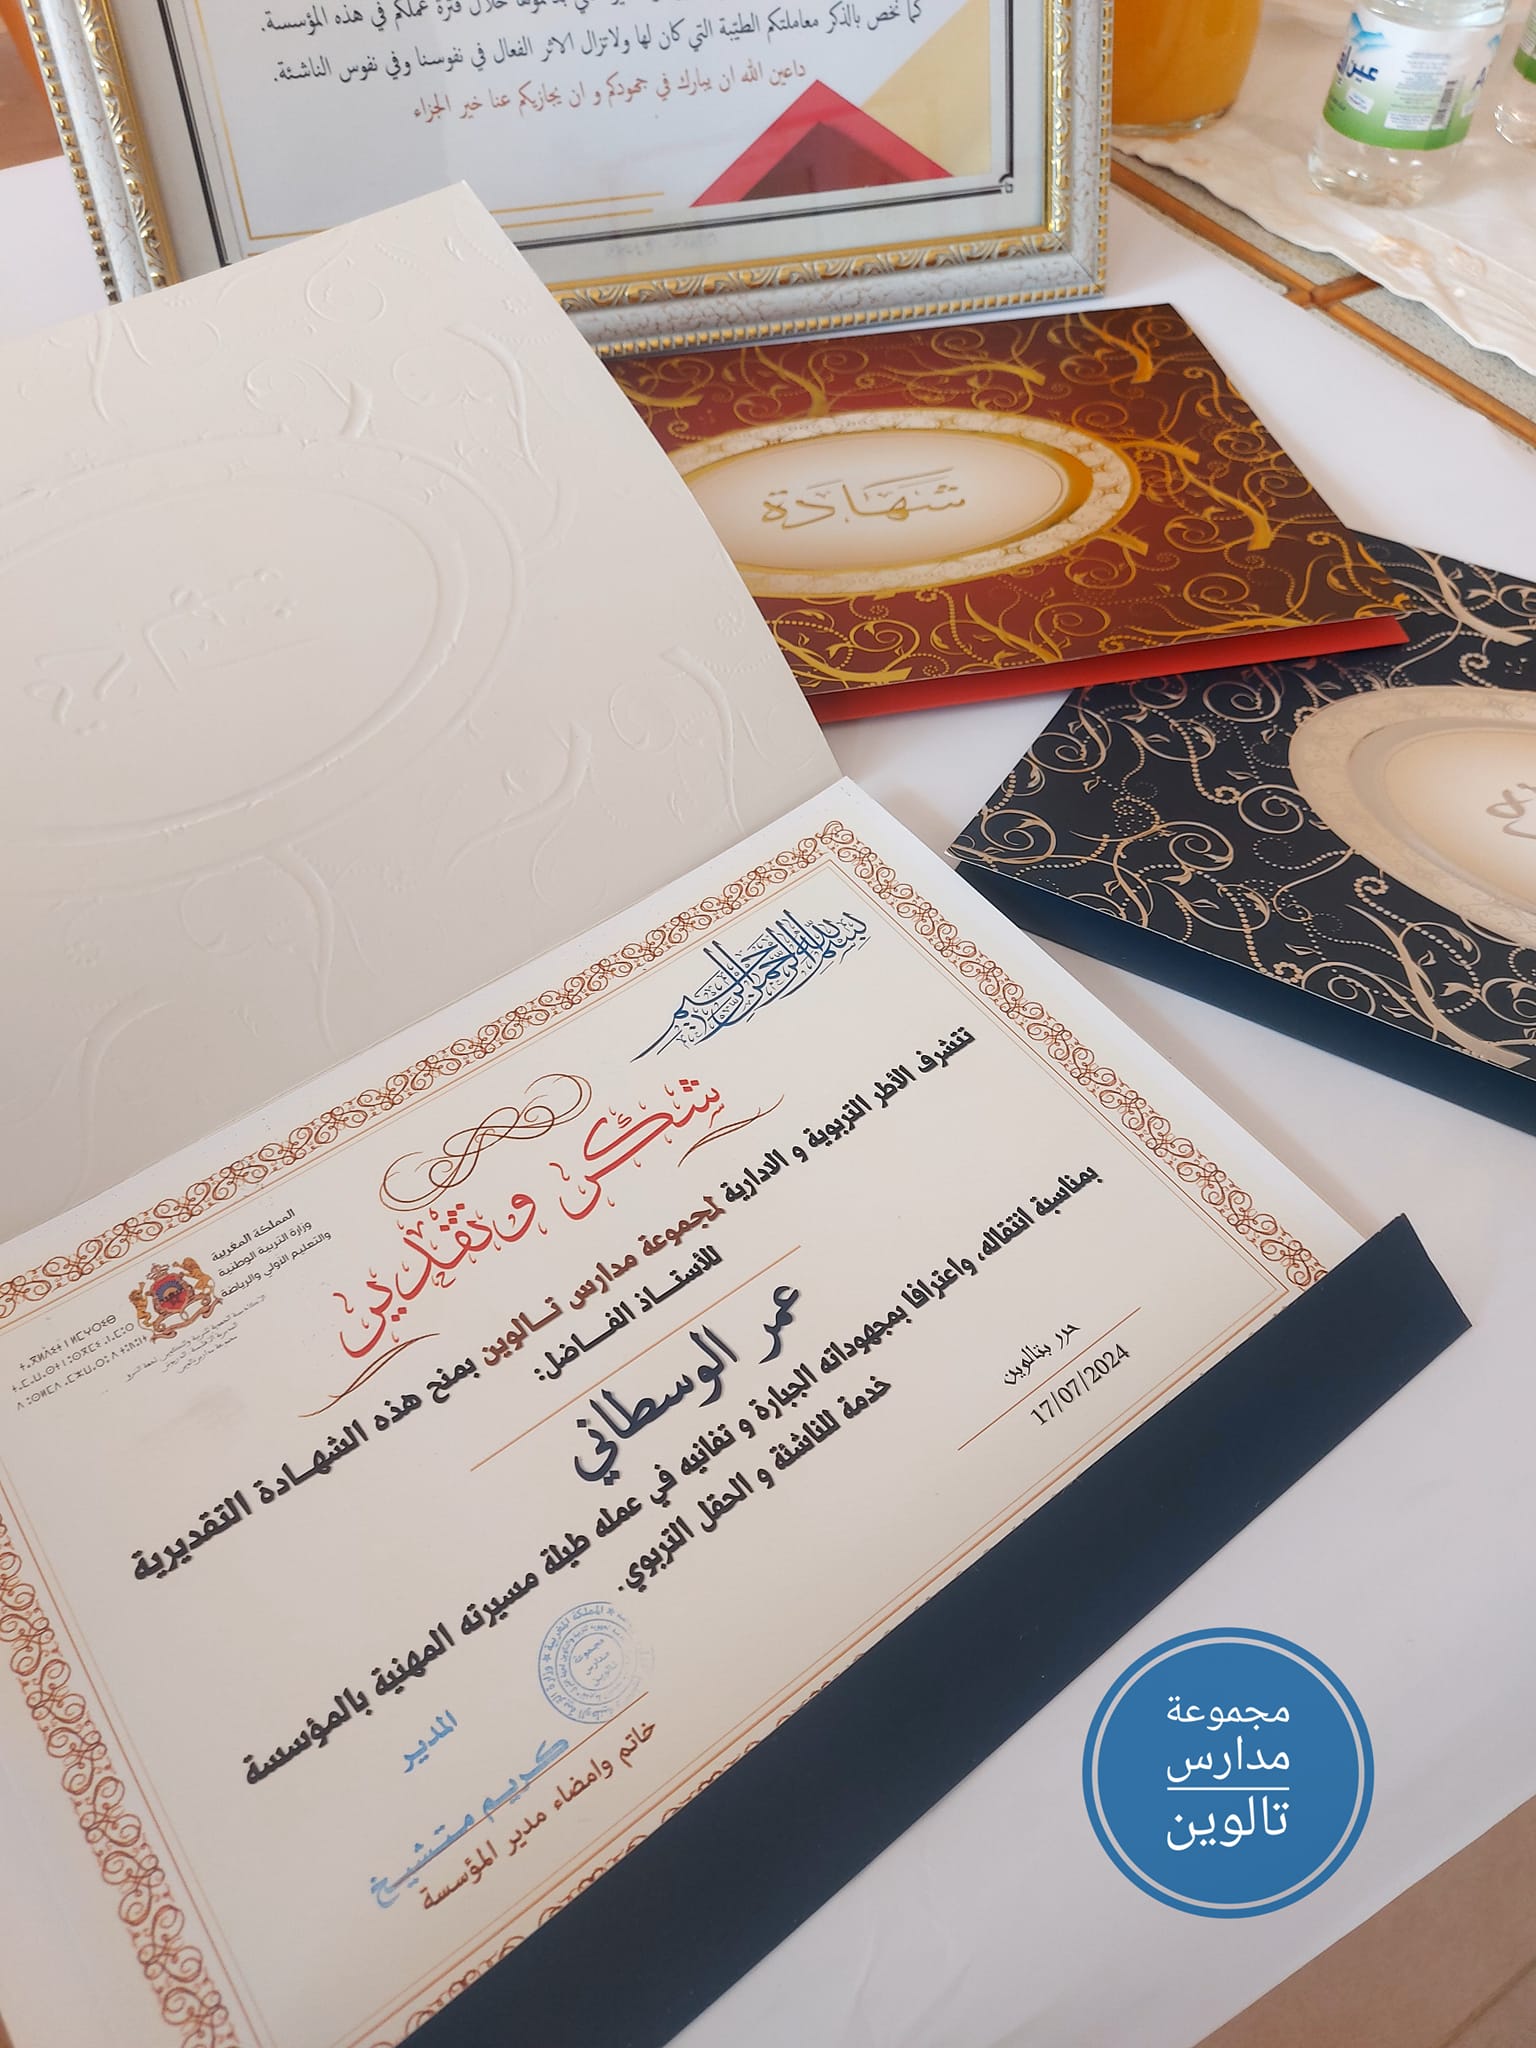 كما نخص بالذكر معاملتكم الطيبة التي كان لها ولاتزال الاثر الفعال في نفوسنا وفي نفوس الناشئة.
داعين الله ان يبارك في جهودكم و ان يجازيكم عنا خير الجزاء
عين
شهادة
بسم الله الرحمن الرحيم
المملكة المغربية
وزارة التربية الوطنية
والتعليم الأولي والرياضة
شكر وتقدير
تتشرف الأطر التربوية و الادارية لمجموعة مدارس تالوين بمنح هذه الشهادة التقديرية
للأستاذ الفاضل:
عمر الوسطاني
بمناسبة انتقاله، واعترافا بمجهوداته الجبارة و تفانيه في عمله طيلة مسيرته المهنية بالمؤسسة
خدمة للناشئة و الحقل التربوي.
حرر بتالوين
17/07/2024
مجموعة
مدارس
تالوين
المدير
كريم متشيخ
خاتم وامضاء مدير المؤسسة
مجموعة
مدارس
تالوين